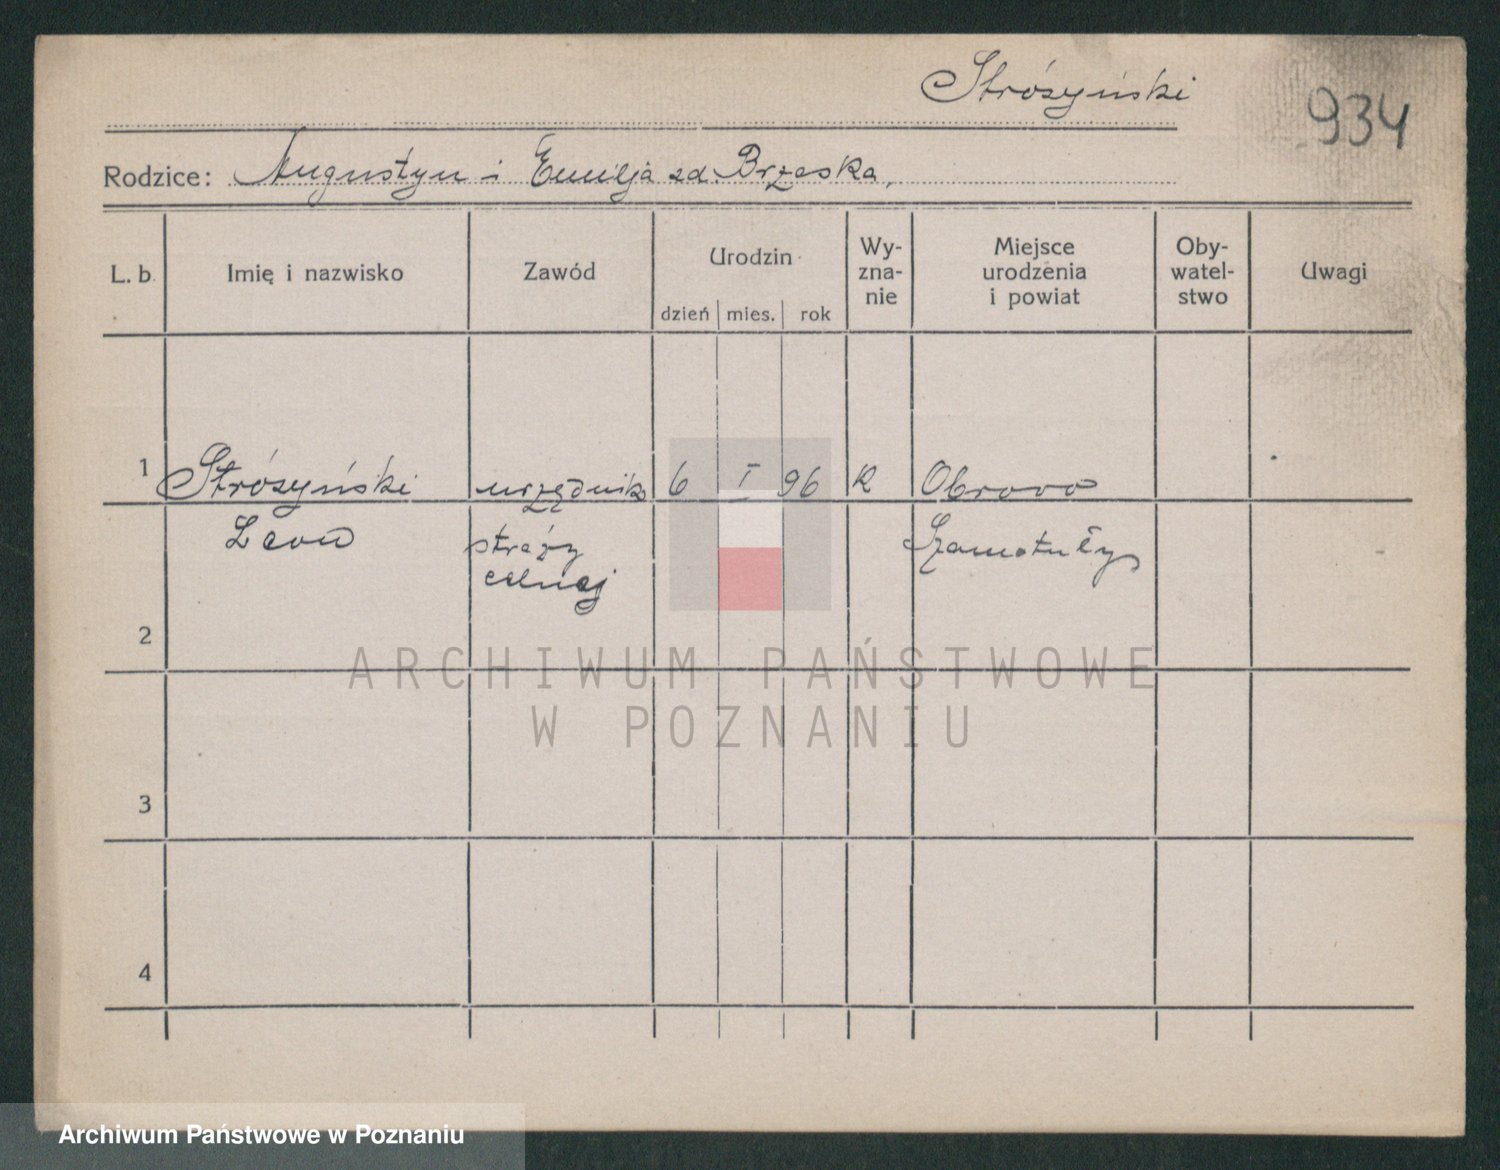 Stróżyński
934
Rodzice: Augustyn i Emilja zd. Brzeska,
L. b. Imię i nazwisko Zawód Urodzin Wy- zna- nie Miejsce urodzenia i powiat Oby- watel- stwo Uwagi
dzień mies. rok
1 Stróżyński urzędnik 6 I 96 R Obrowo
Leon straży Szamotuły
celnej
2
ARCHIWUM PAŃSTWOWE
W POZNANIU
3
4
Archiwum Państwowe w Poznaniu